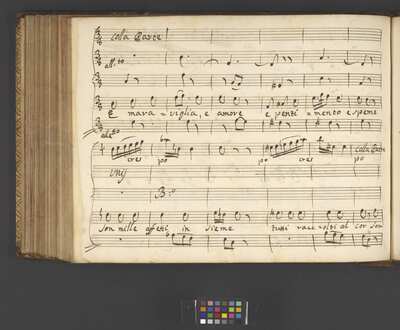 cola Parte
all.to
E mara=viglia, e amore e penti=mento e speme
all.to
cres po po cres po
cola Parte
Unis
B:o
son mille affetti in sieme tutti racc volti al cor son